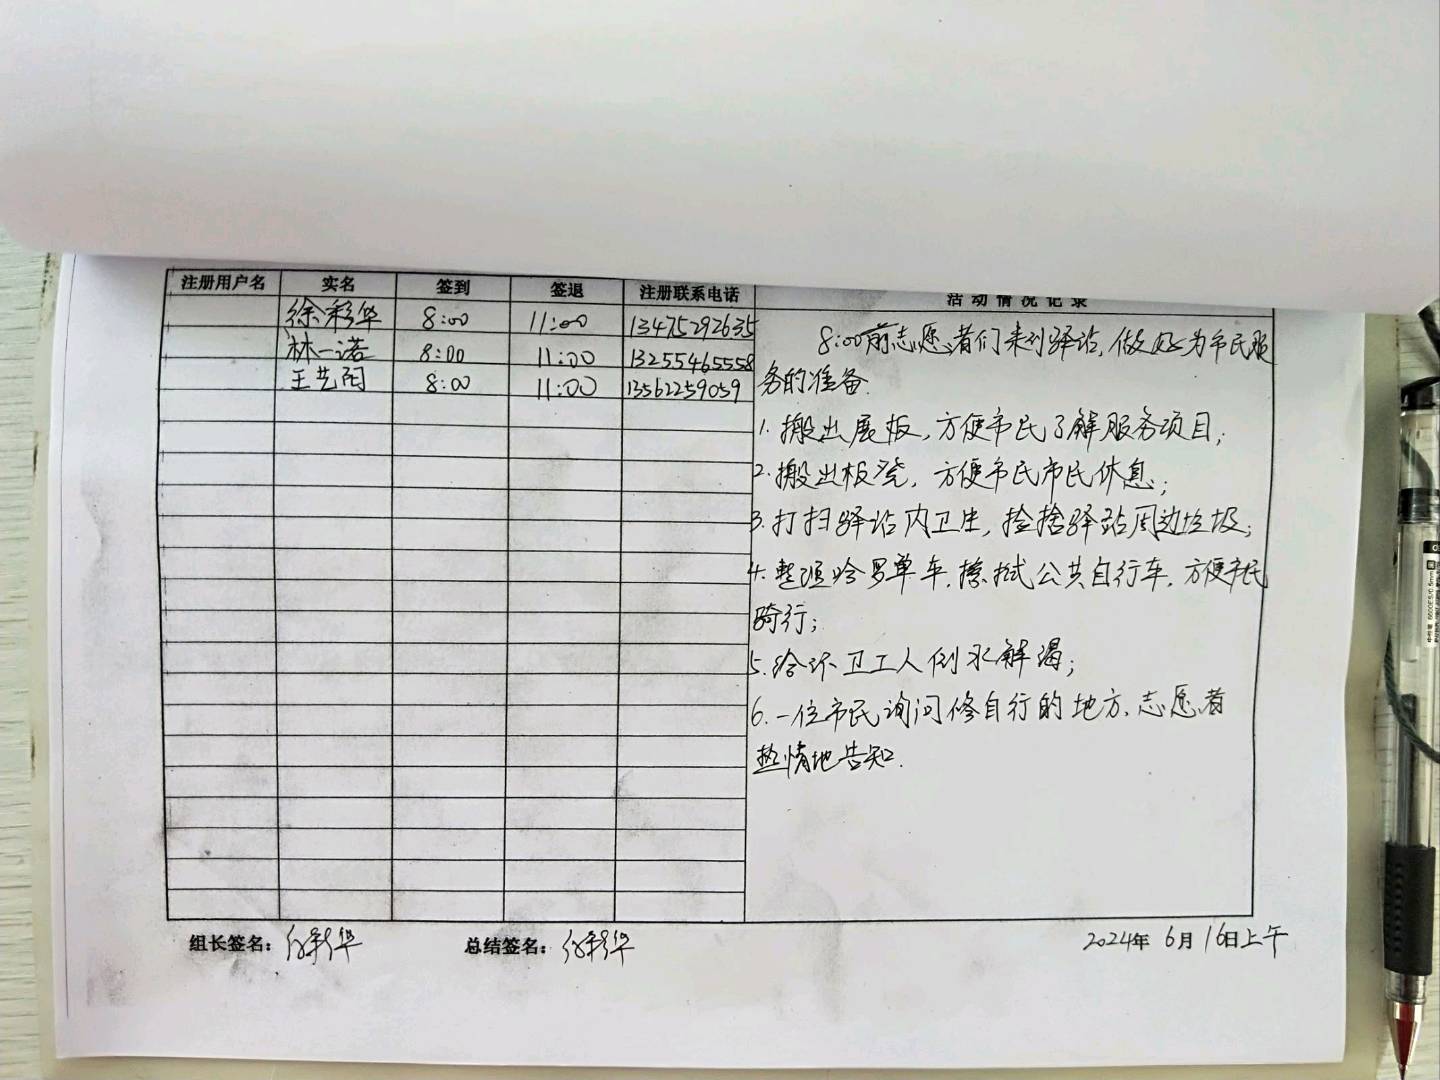 注册用户名 实名 签到 签退 注册联系电话 活动情况记录
徐彩华 8:00 11:00 13475292635
林一诺 8:00 11:00 13255465558
王艺闳 8:00 11:00 13562259059
8:00前志愿者们来到驿站,做好为市民服
务的准备.
1.搬出展板,方便市民了解服务项目;
2.搬出板凳,方便市民市民休息;
3.打扫驿站内卫生,捡拾驿站周边垃圾;
4.整理哈罗单车,擦拭公共自行车,方便市民
骑行;
5.给环卫工人倒水解渴;
6.一位市民询问修自行的地方,志愿者
热情地告知.
组长签名:徐彩华 总结签名:徐彩华 2024年6月16日上午